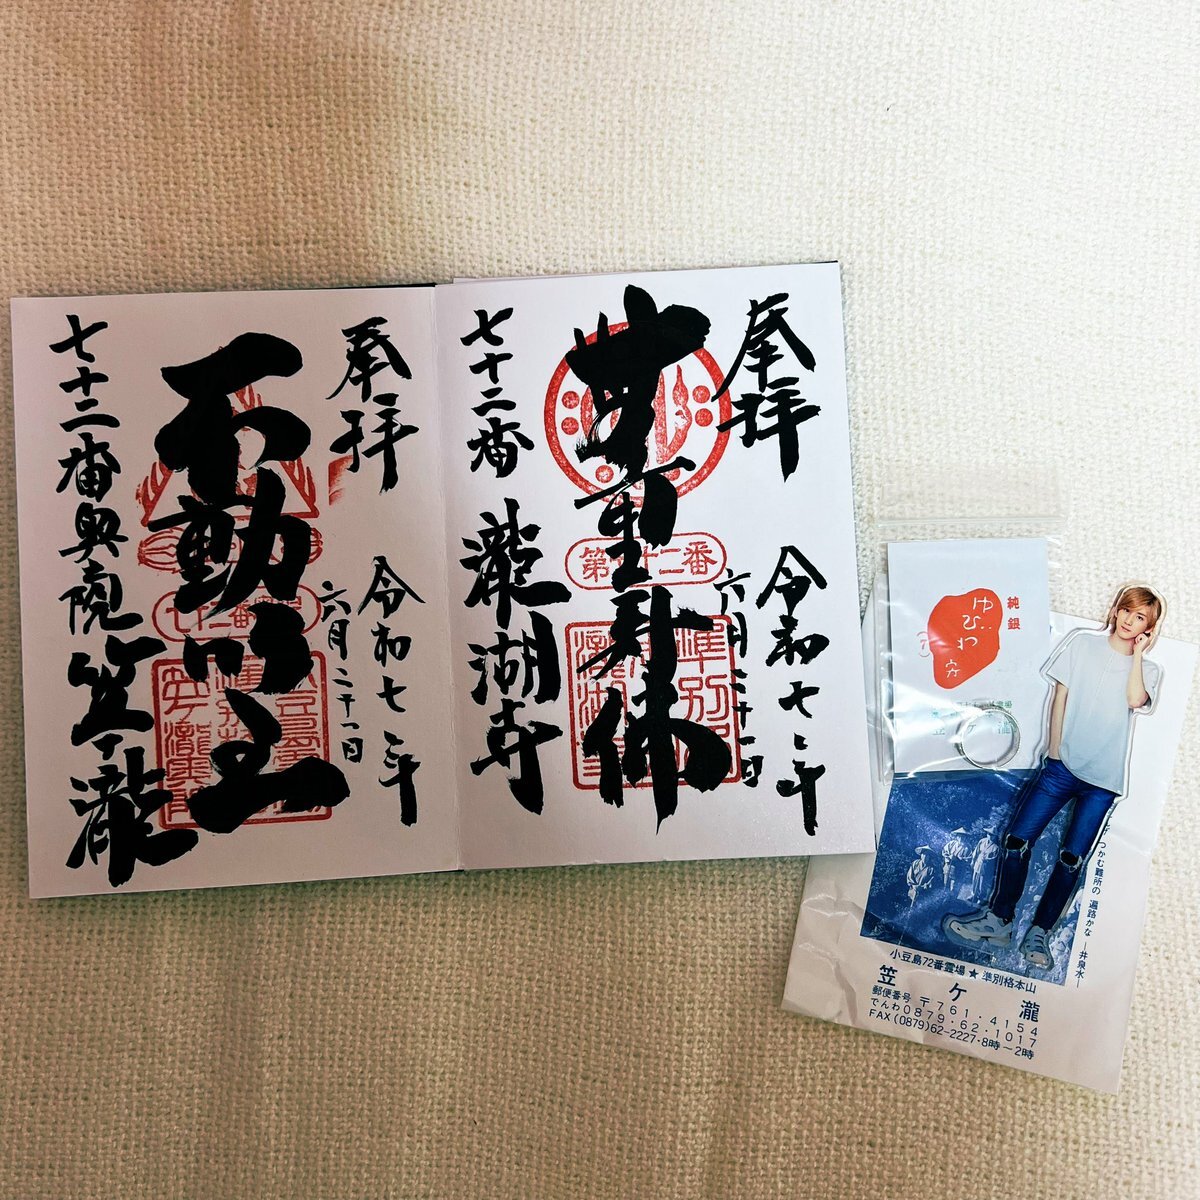 奉拝
令和七年
六月二十一日
無量寿佛
第七十二番
七十二番 瀧湖寺
奉拝
令和七年
六月二十一日
不動明王
七十二番奥院 笠ヶ瀧
純銀
ゆびわ守
笠ケ瀧
つかむ難所の 遍路かな ―井泉水―
小豆島72番霊場★準別格本山
笠ケ瀧
郵便番号 〒761・4154
でんわ0879・62・1017
FAX(0879)62-2227・8時~2時